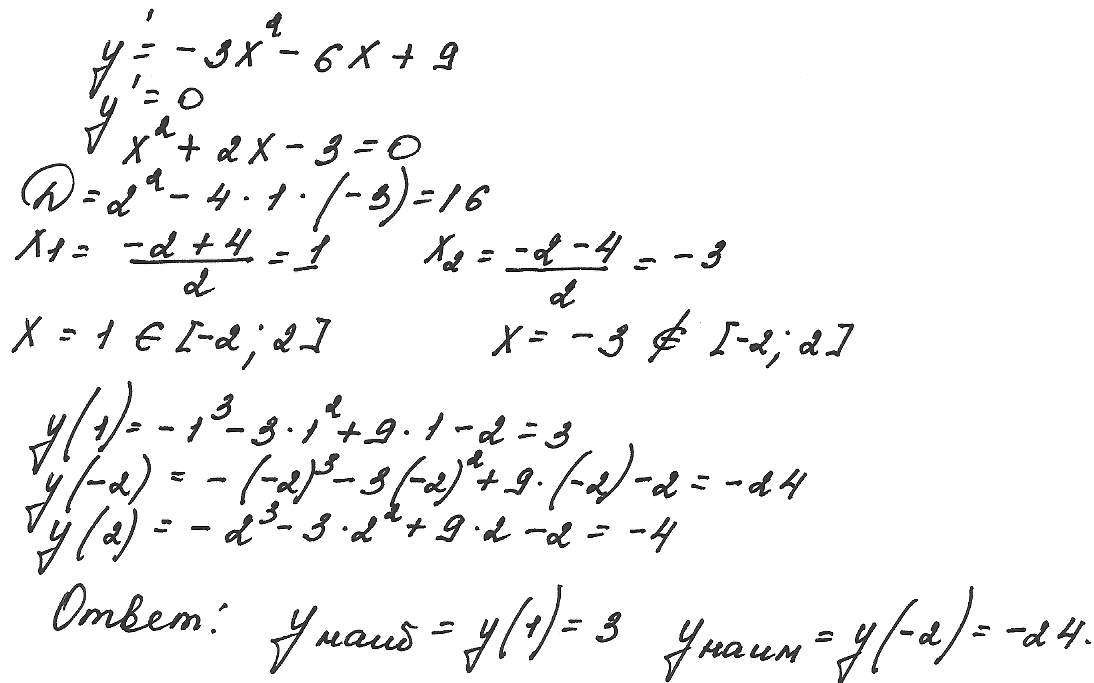 y' = -3x² - 6x + 9
y' = 0
x² + 2x - 3 = 0
D = 2² - 4 · 1 · (-3) = 16
x₁ = (-2 + 4)/2 = 1    x₂ = (-2 - 4)/2 = -3
x = 1 ∈ [-2; 2]    x = -3 ∉ [-2; 2]
y(1) = -1³ - 3 · 1² + 9 · 1 - 2 = 3
y(-2) = -(-2)³ - 3(-2)² + 9 · (-2) - 2 = -24
y(2) = -2³ - 3 · 2² + 9 · 2 - 2 = -4
Ответ: y наиб = y(1) = 3    y наим = y(-2) = -24.